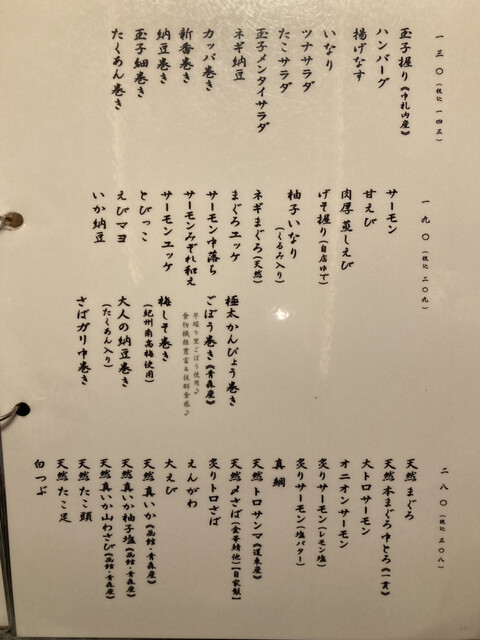 一三〇(税込 一四三)
玉子握り《中札内産》
ハンバーグ
揚げなす
いなり
ツナサラダ
たこサラダ
玉子メンタイサラダ
ネギ納豆
カッパ巻き
新香巻き
納豆巻き
玉子細巻き
たくあん巻き
一九〇(税込 二〇九)
サーモン
甘えび
肉厚蒸しえび
げそ握り(自店ゆで)
柚子いなり
(くるみ入り)
ネギまぐろ(天然)
まぐろユッケ
サーモン中落ち
サーモンみぞれ和え
サーモンユッケ
とびっこ
えびマヨ
いか納豆
極太かんぴょう巻き
ごぼう巻き《青森産》
早堀り里ごぼう使用♪
食物繊維豊富&抜群食感♪
梅しそ巻き
(紀州南高梅使用)
大人の納豆巻き
(たくあん入り)
さばガリ中巻き
二八〇(税込 三〇八)
天然まぐろ
天然本まぐろ中とろ《一貫》
大トロサーモン
オニオンサーモン
炙りサーモン(レモン塩)
炙りサーモン(塩バター)
真鯛
天然トロサンマ《道東産》
天然〆さば(金華鯖他)【自家製】
炙りトロさば
えんがわ
大えび
天然真いか《函館・青森産》
天然真いか柚子塩《函館・青森産》
天然真いか山わさび《函館・青森産》
天然たこ頭
天然たこ足
白つぶ